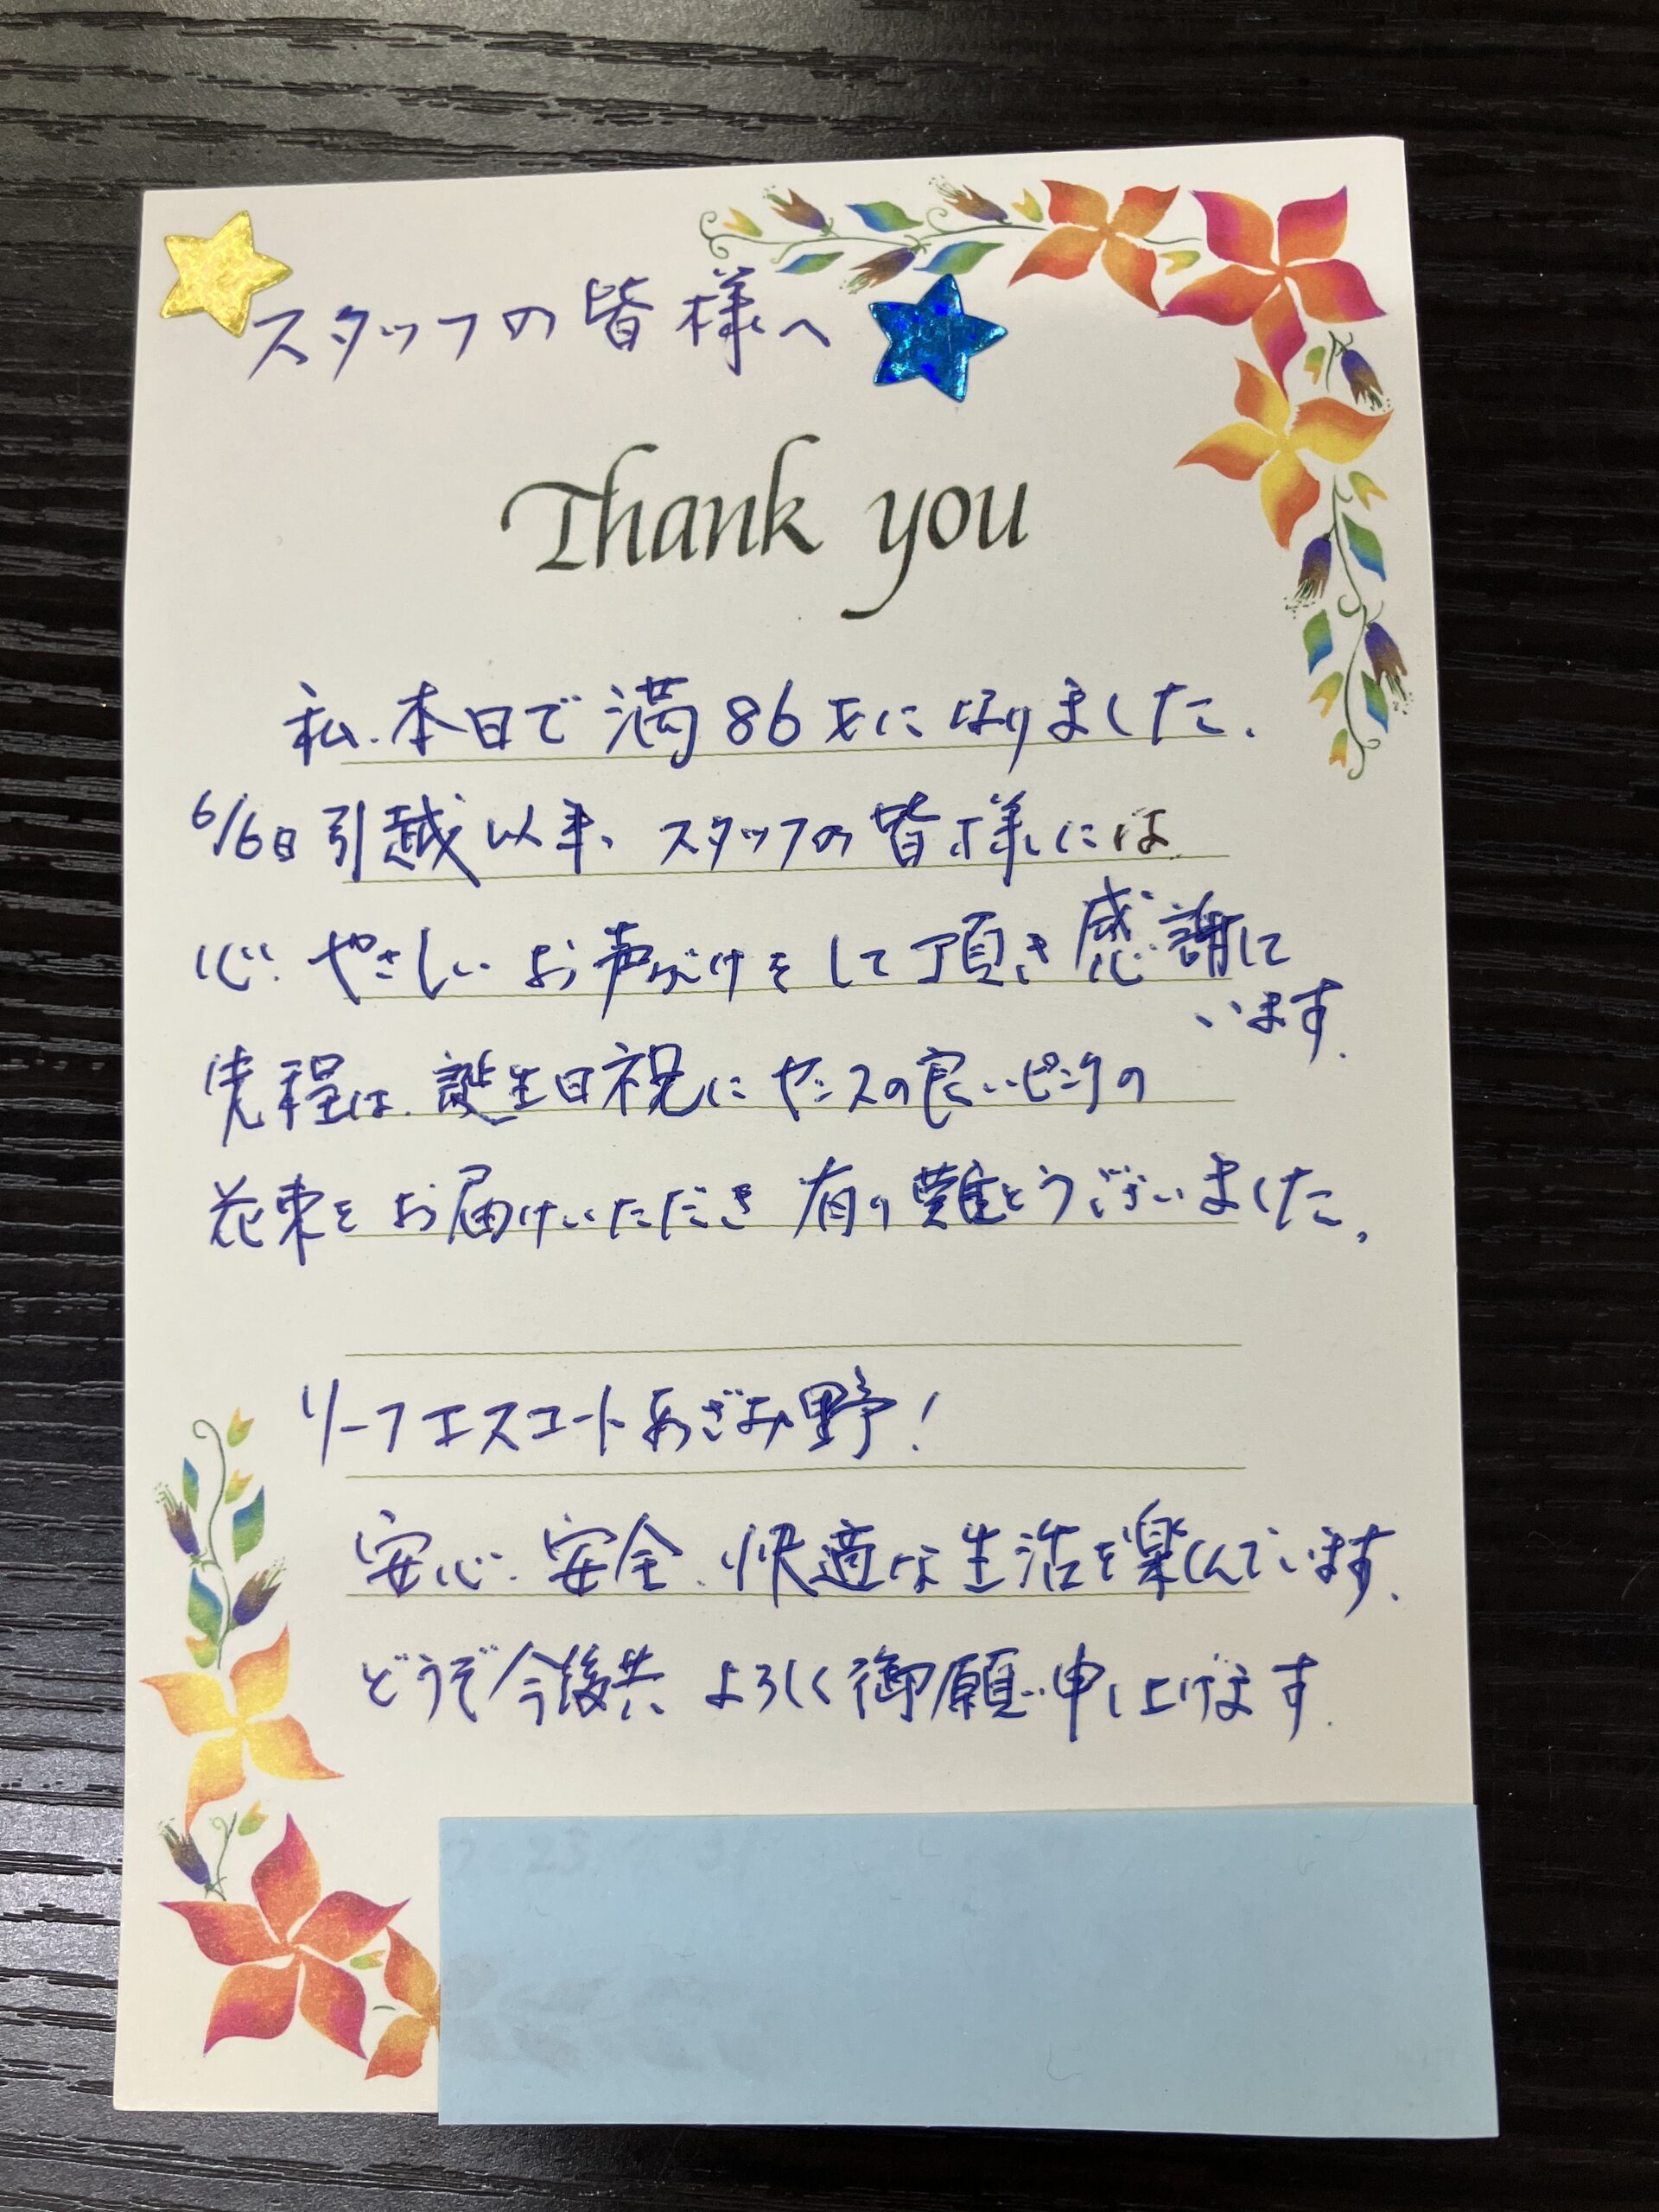 スタッフの皆様へ
Thank you
私、本日で満86才になりました。
6/6日引越以来、スタッフの皆様には
心やさしいお声がけをして頂き感謝して
います。
先程は、誕生日祝にセンスの良いピンクの
花束をお届けいただき有り難とうございました。
リーフエスコートあざみ野!
安心、安全、快適な生活を楽しんでいます。
どうぞ今後共よろしく御願い申し上げます。